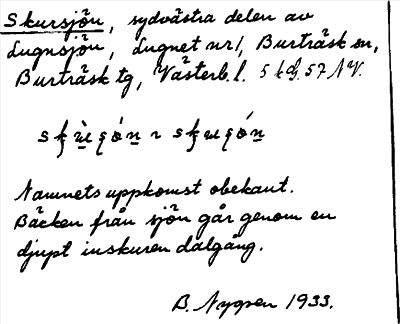 Skursjön, sydvästra delen av
Lugnsjön, Lugnet nr 1, Burträsk sn,
Burträsk tg, Västerb. l. 5 kd. 57 NV.
Namnets uppkomst obekant.
Bäcken från sjön går genom en
djupt inskuren dalgång.
B. Nygren 1933.